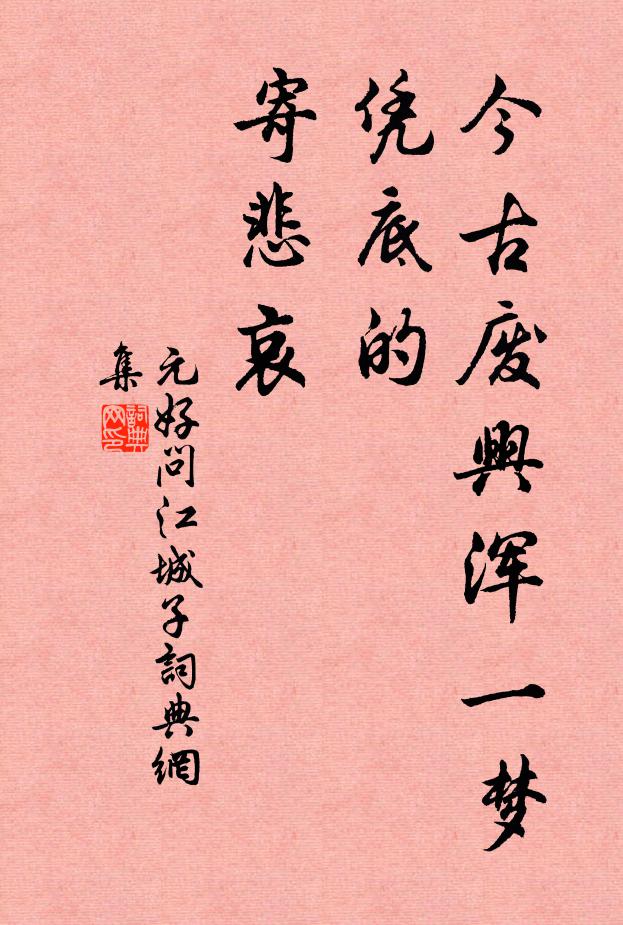 今古废興浑一梦
凭底的
寄悲哀
元好问江城子詞典網
集
詞典
网印